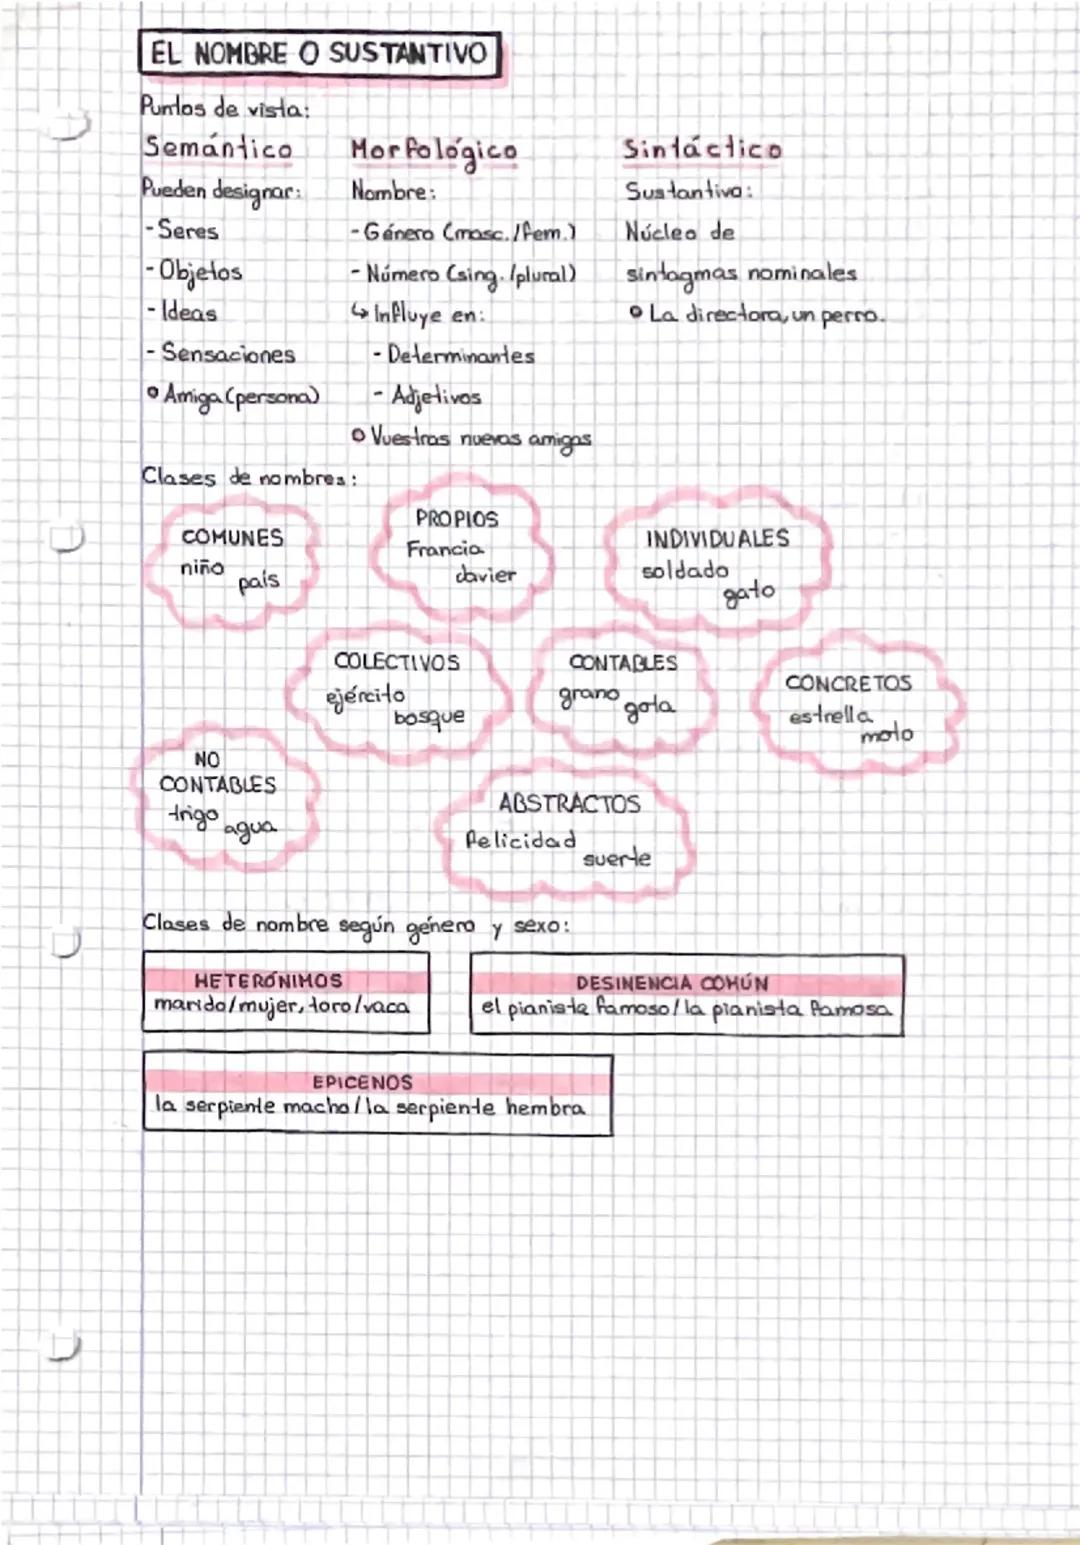 EL NOMBRE O SUSTANTIVO
Puntos de vista:
Semántico
Pueden designar:
- Seres
- Objetos
- Ideas
- Sensaciones
Amiga (persona)
Morfológico
Nombre:
- Género (masc./fem.)
- Número (sing./plural)
↳ Influye en:
- Determinantes
- Adjetivos
Vuestras nuevas amigas
Sintáctico
Sustantivo:
Núcleo de
sintagmas nominales
La directora, un perro.
Clases de nombres:
COMUNES
niño
país
PROPIOS
Francia
Javier
INDIVIDUALES
soldado
gato
COLECTIVOS
ejército
bosque
CONTABLES
grano
gota
CONCRETOS
estrella
moto
NO
CONTABLES
trigo
agua
ABSTRACTOS
felicidad
suerte
Clases de nombre según género y sexo:
HETERÓNIMOS
marido/mujer, toro/vaca
DESINENCIA COMÚN
el pianista famoso/la pianista famosa
EPICENOS
la serpiente macho/la serpiente hembra